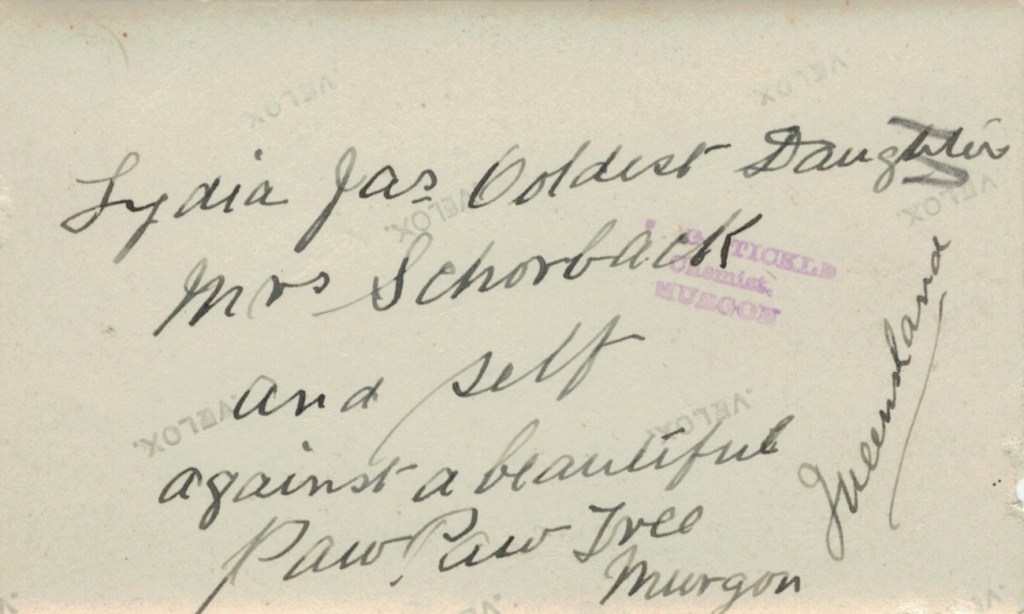 Lydia Jas Ooldest Daughter
Mrs Schorback
and self
against a beautiful
Paw Paw Tree
Murgon
Queensland
TICKLE
Chemist.
MURGON
VELOX
VELOX
VELOX
VELOX
VELOX
VELOX